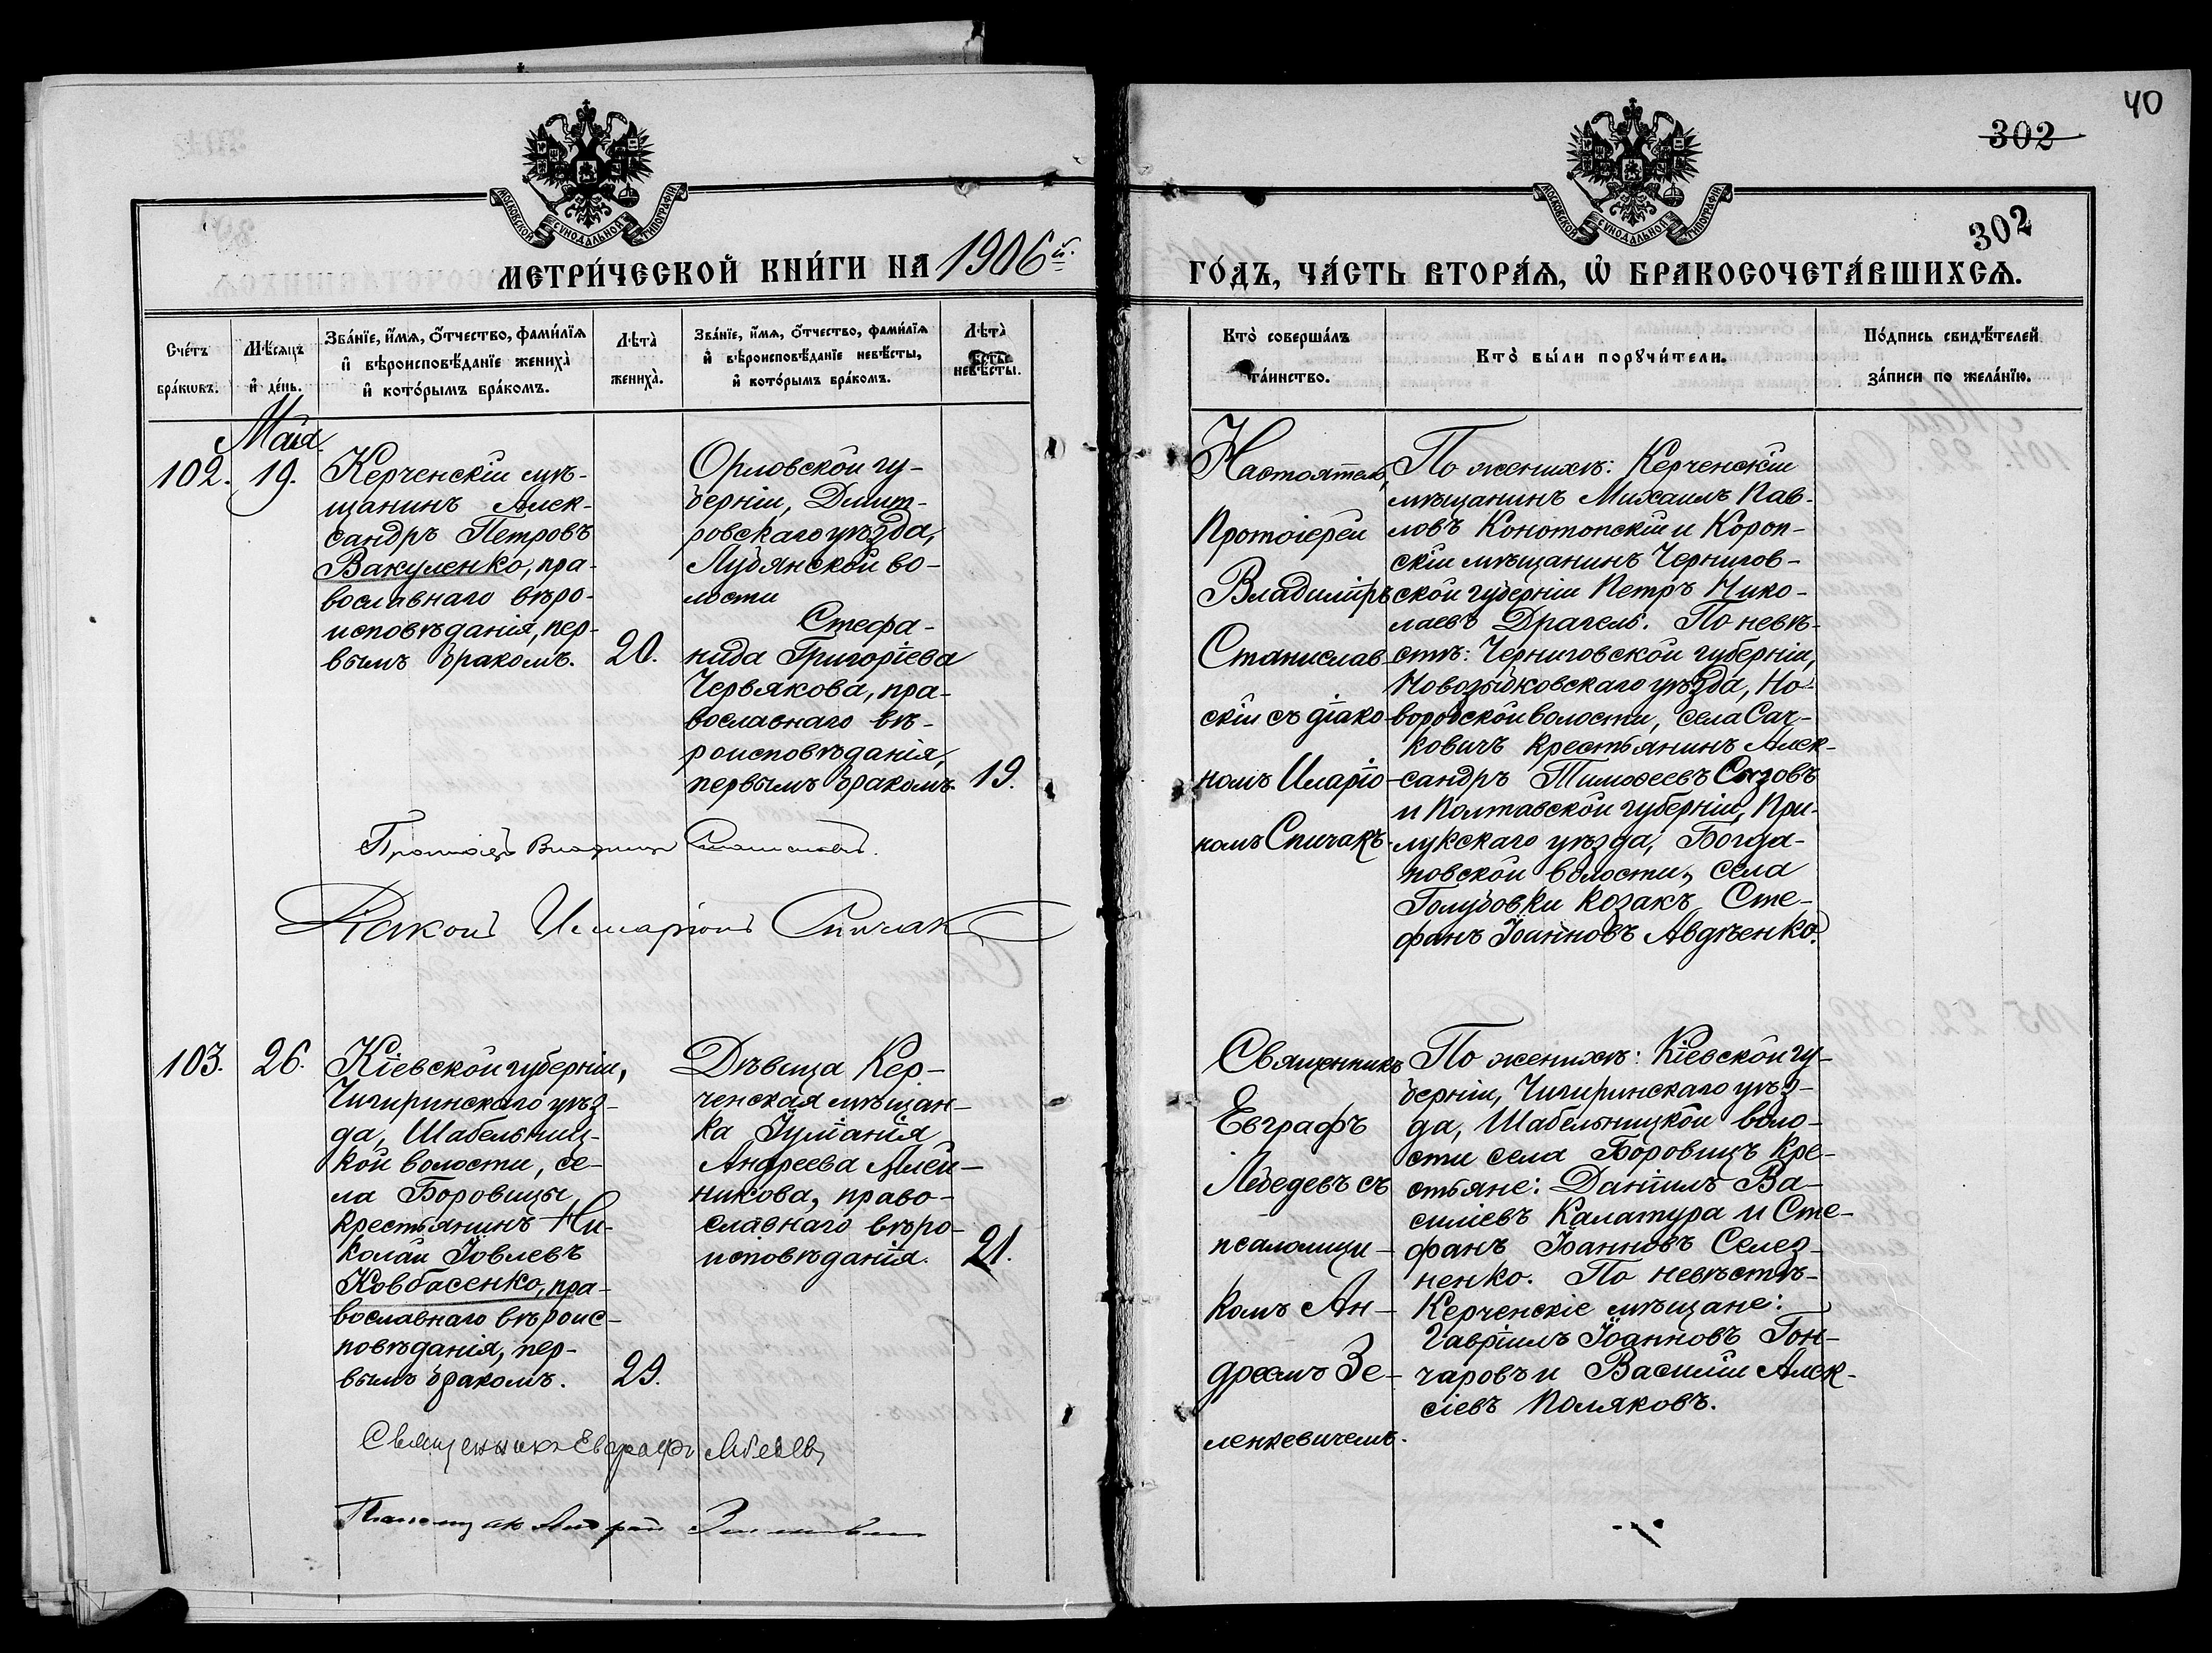 40
302
302
МОСКОВСКОЙ СѴНОДАЛЬНОЙ ТИПОГРАФІИ
МОСКОВСКОЙ СѴНОДАЛЬНОЙ ТИПОГРАФІИ
МЕТРИ́ЧЕСКОЙ КНИ́ГИ НА 1906й.
ГО́ДЪ, ЧА́СТЬ ВТОРА́Я, Ѿ БРАКОСОЧЕТА́ВШИХСЯ.
Сче́тъ
бра́кѡвъ.
Мѣ́сяцъ
и҆ де́нь.
Зва́нїе, и҆́мя, ѻ҆́тчество, фами́лїя
и҆ вѣроисповѣ́данїе жениха̀
и҆ кото́рымъ бра́комъ.
Лѣта̀
жениха̀.
Зва́нїе, и҆́мя, ѻ҆́тчество, фами́лїя
и҆ вѣроисповѣ́данїе невѣ́сты,
и҆ кото́рымъ бра́комъ.
Лѣта̀
невѣ́сты.
Кто̀ соверша́лъ
та́инство.
Кто̀ бы́ли порꙋчи́тели.
По́дпись свидѣ́телей
за́писи по жела́нїю.
Мая
102.
19.
Керченскій мѣ-
щанинъ Алек-
сандръ Петровъ
Вакуленко, пра-
вославнаго вѣро-
исповѣданія, пер-
вымъ бракомъ.
20.
Орловской гу-
берніи, Дмит-
ровскаго уѣзда,
Лубянской во-
лости
Стефа-
нида Григоріева
Червякова, пра-
вославнаго вѣ-
роисповѣданія,
первымъ бракомъ.
19.
Настоятель,
Протоіерей
Владиміръ
Станислав-
скій съ діако-
номъ Иларіо-
номъ Спичакъ.
По женихѣ: Керченскій
мѣщанинъ Михаилъ Пав-
ловъ Конотопскій и Короп-
скій мѣщанинъ Чернигов-
ской губерніи Петръ Нико-
лаевъ Драгель. По невѣ-
стѣ: Черниговской губерніи,
Новозыбковскаго уѣзда, Но-
воробской волости, села Сач-
ковичъ крестьянинъ Алек-
сандръ Тимоѳеевъ Сызовъ
и Полтавской губерніи, При-
лукскаго уѣзда, Богда-
новской волости, села
Голубовки козакъ Сте-
фанъ Іоанновъ Авдѣенко.
Протоіер Владимир
Діаконъ Иларіонъ Спичакъ
103.
26.
Кіевской губерніи,
Чигиринскаго уѣз-
да, Шабельниц-
кой волости, се-
ла Боровицы
крестьянинъ Ни-
колай Іовлевъ
Ковбасенко, пра-
вославнаго вѣроис-
повѣданія, пер-
вымъ бракомъ.
29.
Дѣвица Кер-
ченская мѣщан-
ка Іуліанія
Андреева Алей-
никова, право-
славнаго вѣро-
исповѣданія.
21.
Священникъ
Евграфъ
Лебедевъ съ
псаломщи-
комъ Ан-
дреемъ Зе-
ленкевичемъ.
По женихѣ: Кіевской гу-
берніи, Чигиринскаго уѣз-
да, Шабельницкой воло-
сти села Боровицъ кре-
стьяне: Даніилъ Ва-
силіевъ Калатура и Сте-
фанъ Іоанновъ Селез-
ненко. По невѣстѣ-
Керченскіе мѣщане:
Гавріилъ Іоанновъ Гон-
чаровъ и Василій Алек-
сіевъ Поляковъ.
Священникъ Евграфъ Лебедевъ
Псаломщикъ Андрей